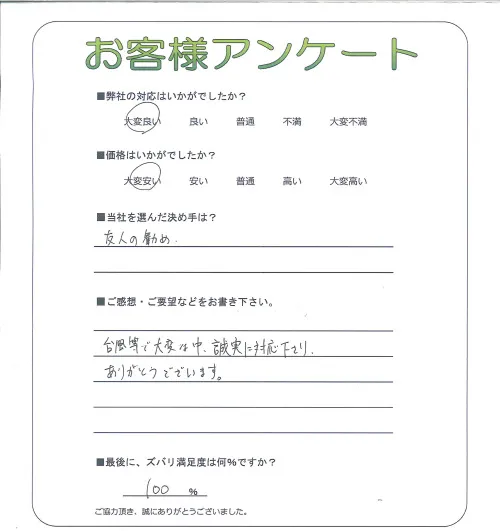 お客様アンケート
■弊社の対応はいかがでしたか？
大変良い 良い 普通 不満 大変不満
■価格はいかがでしたか？
大変安い 安い 普通 高い 大変高い
■当社を選んだ決め手は？
友人の勧め.
■ご感想・ご要望などをお書き下さい。
台風等で大変な中、誠実に対応下さり、
ありがとうございます。
■最後に、ズバリ満足度は何%ですか？
100 %
ご協力頂き、誠にありがとうございました。